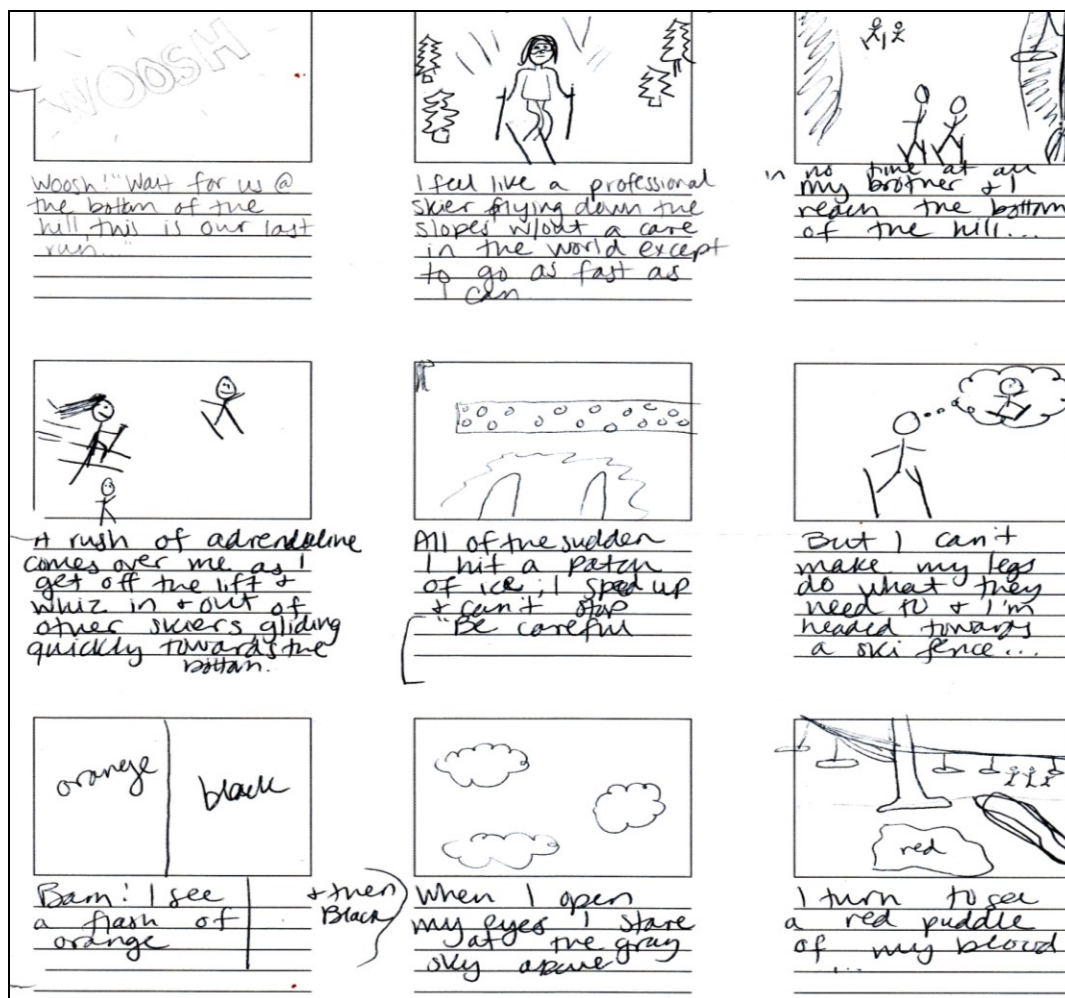 WOOSH
Woosh! "Wait for us @
the bottom of the
hill, this is our last
run..."
I feel like a professional
skier flying down the
slopes w/out a care
in the world except
to go as fast as
I can
in no time at all
my brother & I
reach the bottom
of the hill...
A rush of adrenaline
comes over me as I
get off the lift &
whiz in & out of
other skiers gliding
quickly towards the
bottom.
All of the sudden
I hit a patch
of ice; I sped up
& can't stop
"Be careful
But I can't
make my legs
do what they
need to & I'm
headed towards
a ski fence...
orange
black
Bam! I see
a flash of
orange
& then
Black
When I open
my eyes I stare
at the gray
sky above
red
I turn to see
a red puddle
of my blood
...